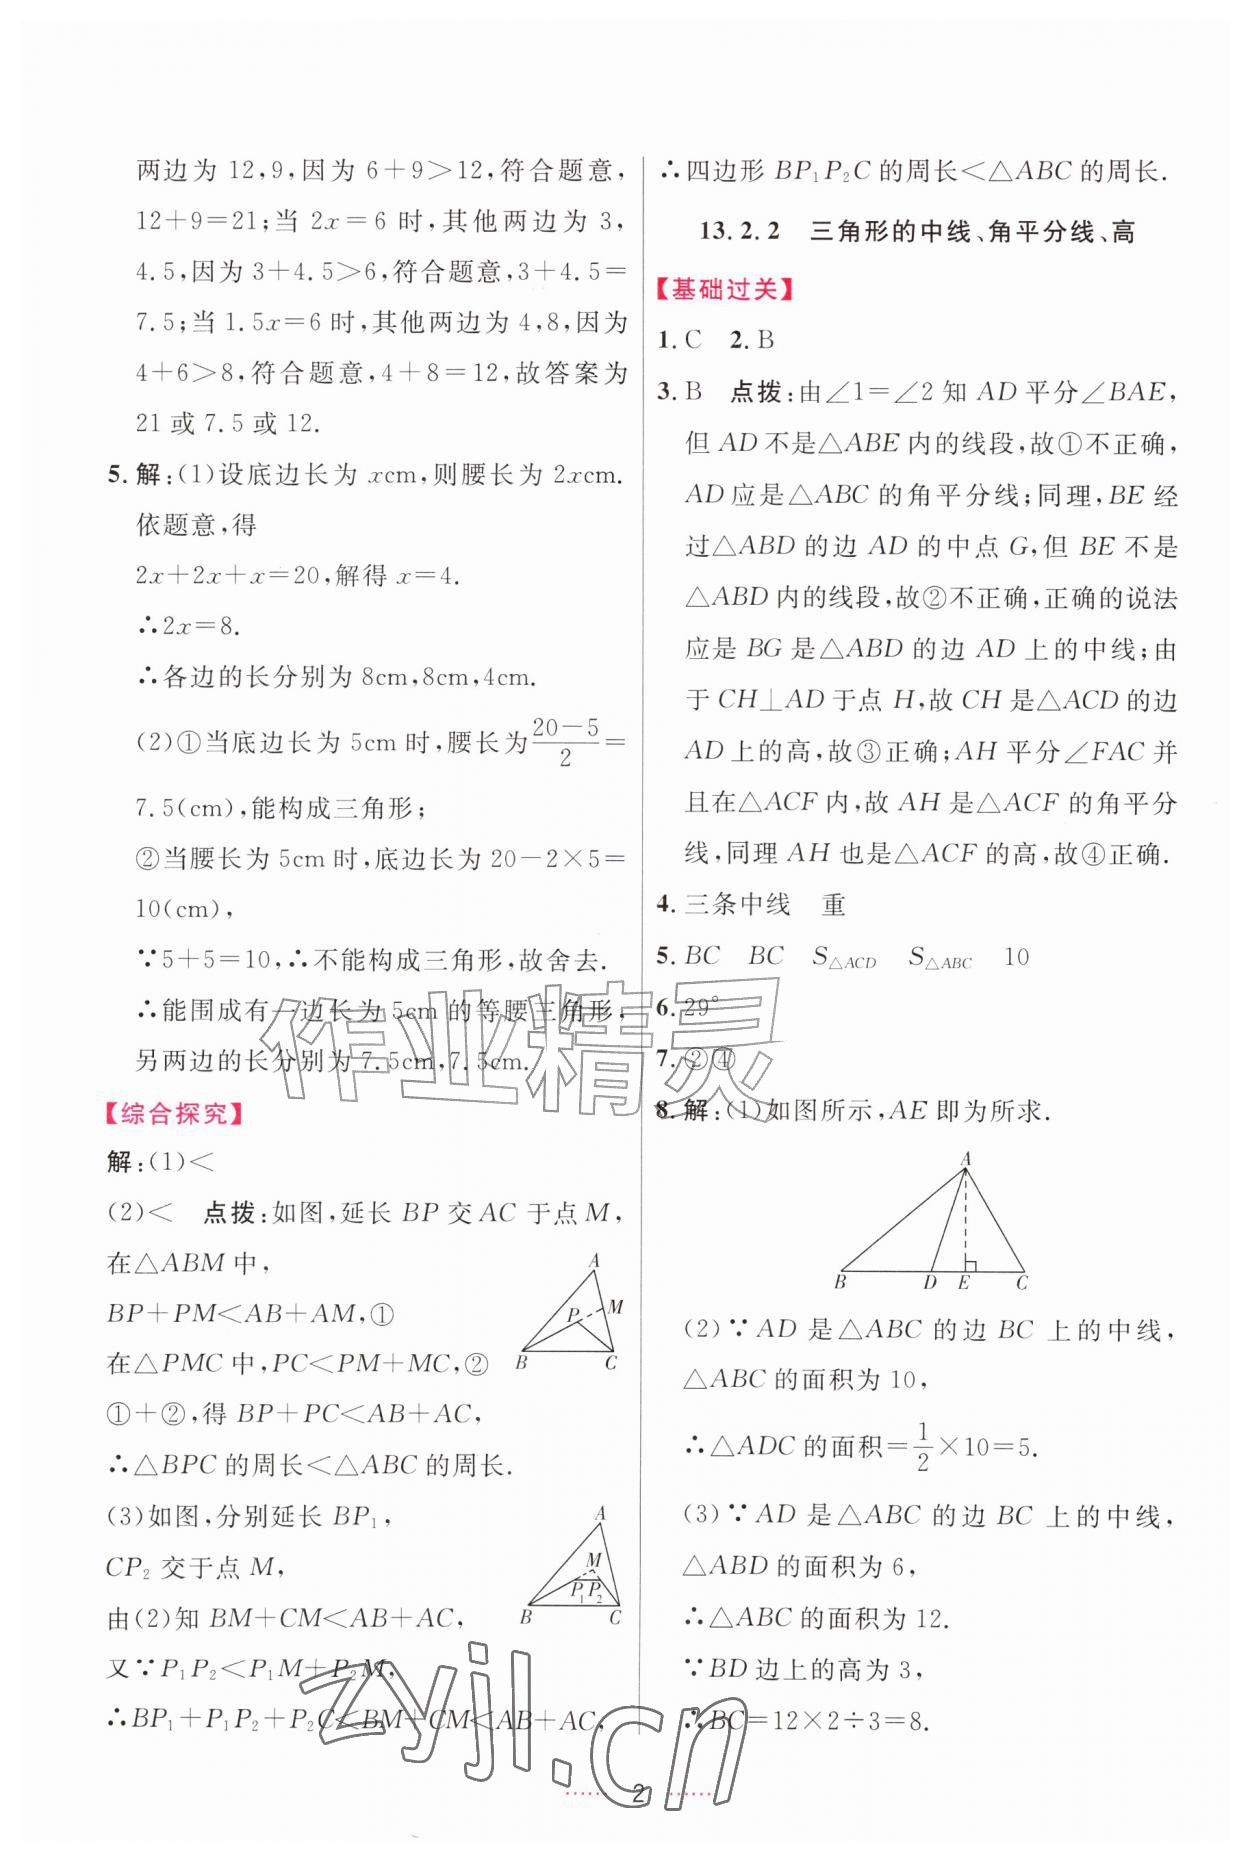 两边为12,9,因为6+9>12,符合题意,
12+9=21;当2x=6时,其他两边为3,
4.5,因为3+4.5>6,符合题意,3+4.5=
7.5;当1.5x=6时,其他两边为4,8,因为
4+6>8,符合题意,4+8=12,故答案为
21或7.5或12.
5.解:(1)设底边长为xcm,则腰长为2xcm.
依题意,得
2x+2x+x=20,解得x=4.
∴2x=8.
∴各边的长分别为8cm,8cm,4cm.
(2)①当底边长为5cm时,腰长为\frac{20-5}{2}=
7.5(cm),能构成三角形;
②当腰长为5cm时,底边长为20-2×5=
10(cm),
∵5+5=10,∴不能构成三角形,故舍去.
∴能围成有一边长为5cm的等腰三角形,
另两边的长分别为7.5cm,7.5cm.
【综合探究】
解:(1)<
(2)< 点拨:如图,延长BP交AC于点M,
在△ABM中,
BP+PM<AB+AM,①
在△PMC中,PC<PM+MC,②
①+②,得BP+PC<AB+AC,
∴△BPC的周长<△ABC的周长.
A
M
P
B C
(3)如图,分别延长BP₁,
CP₂交于点M,
由(2)知BM+CM<AB+AC,
又∵P₁P₂<P₁M+P₂M,
∴BP₁+P₁P₂+P₂C<BM+CM<AB+AC,
A
M
P₁P₂
B C
∴四边形BP₁P₂C的周长<△ABC的周长.
13.2.2 三角形的中线、角平分线、高
【基础过关】
1.C 2.B
3.B 点拨:由∠1=∠2知AD平分∠BAE,
但AD不是△ABE内的线段,故①不正确,
AD应是△ABC的角平分线;同理,BE经
过△ABD的边AD的中点G,但BE不是
△ABD内的线段,故②不正确,正确的说法
应是BG是△ABD的边AD上的中线;由
于CH⊥AD于点H,故CH是△ACD的边
AD上的高,故③正确;AH平分∠FAC并
且在△ACF内,故AH是△ACF的角平分
线,同理AH也是△ACF的高,故④正确.
4.三条中线 重
5.BC BC S△ACD S△ABC 10
6.29°
7.②④
8.解:(1)如图所示,AE即为所求.
A
B D E C
(2)∵AD是△ABC的边BC上的中线,
△ABC的面积为10,
∴△ADC的面积=\frac{1}{2}×10=5.
(3)∵AD是△ABC的边BC上的中线,
△ABD的面积为6,
∴△ABC的面积为12.
∵BD边上的高为3,
∴BC=12×2÷3=8.
作业精灵
zyjl.cn
2